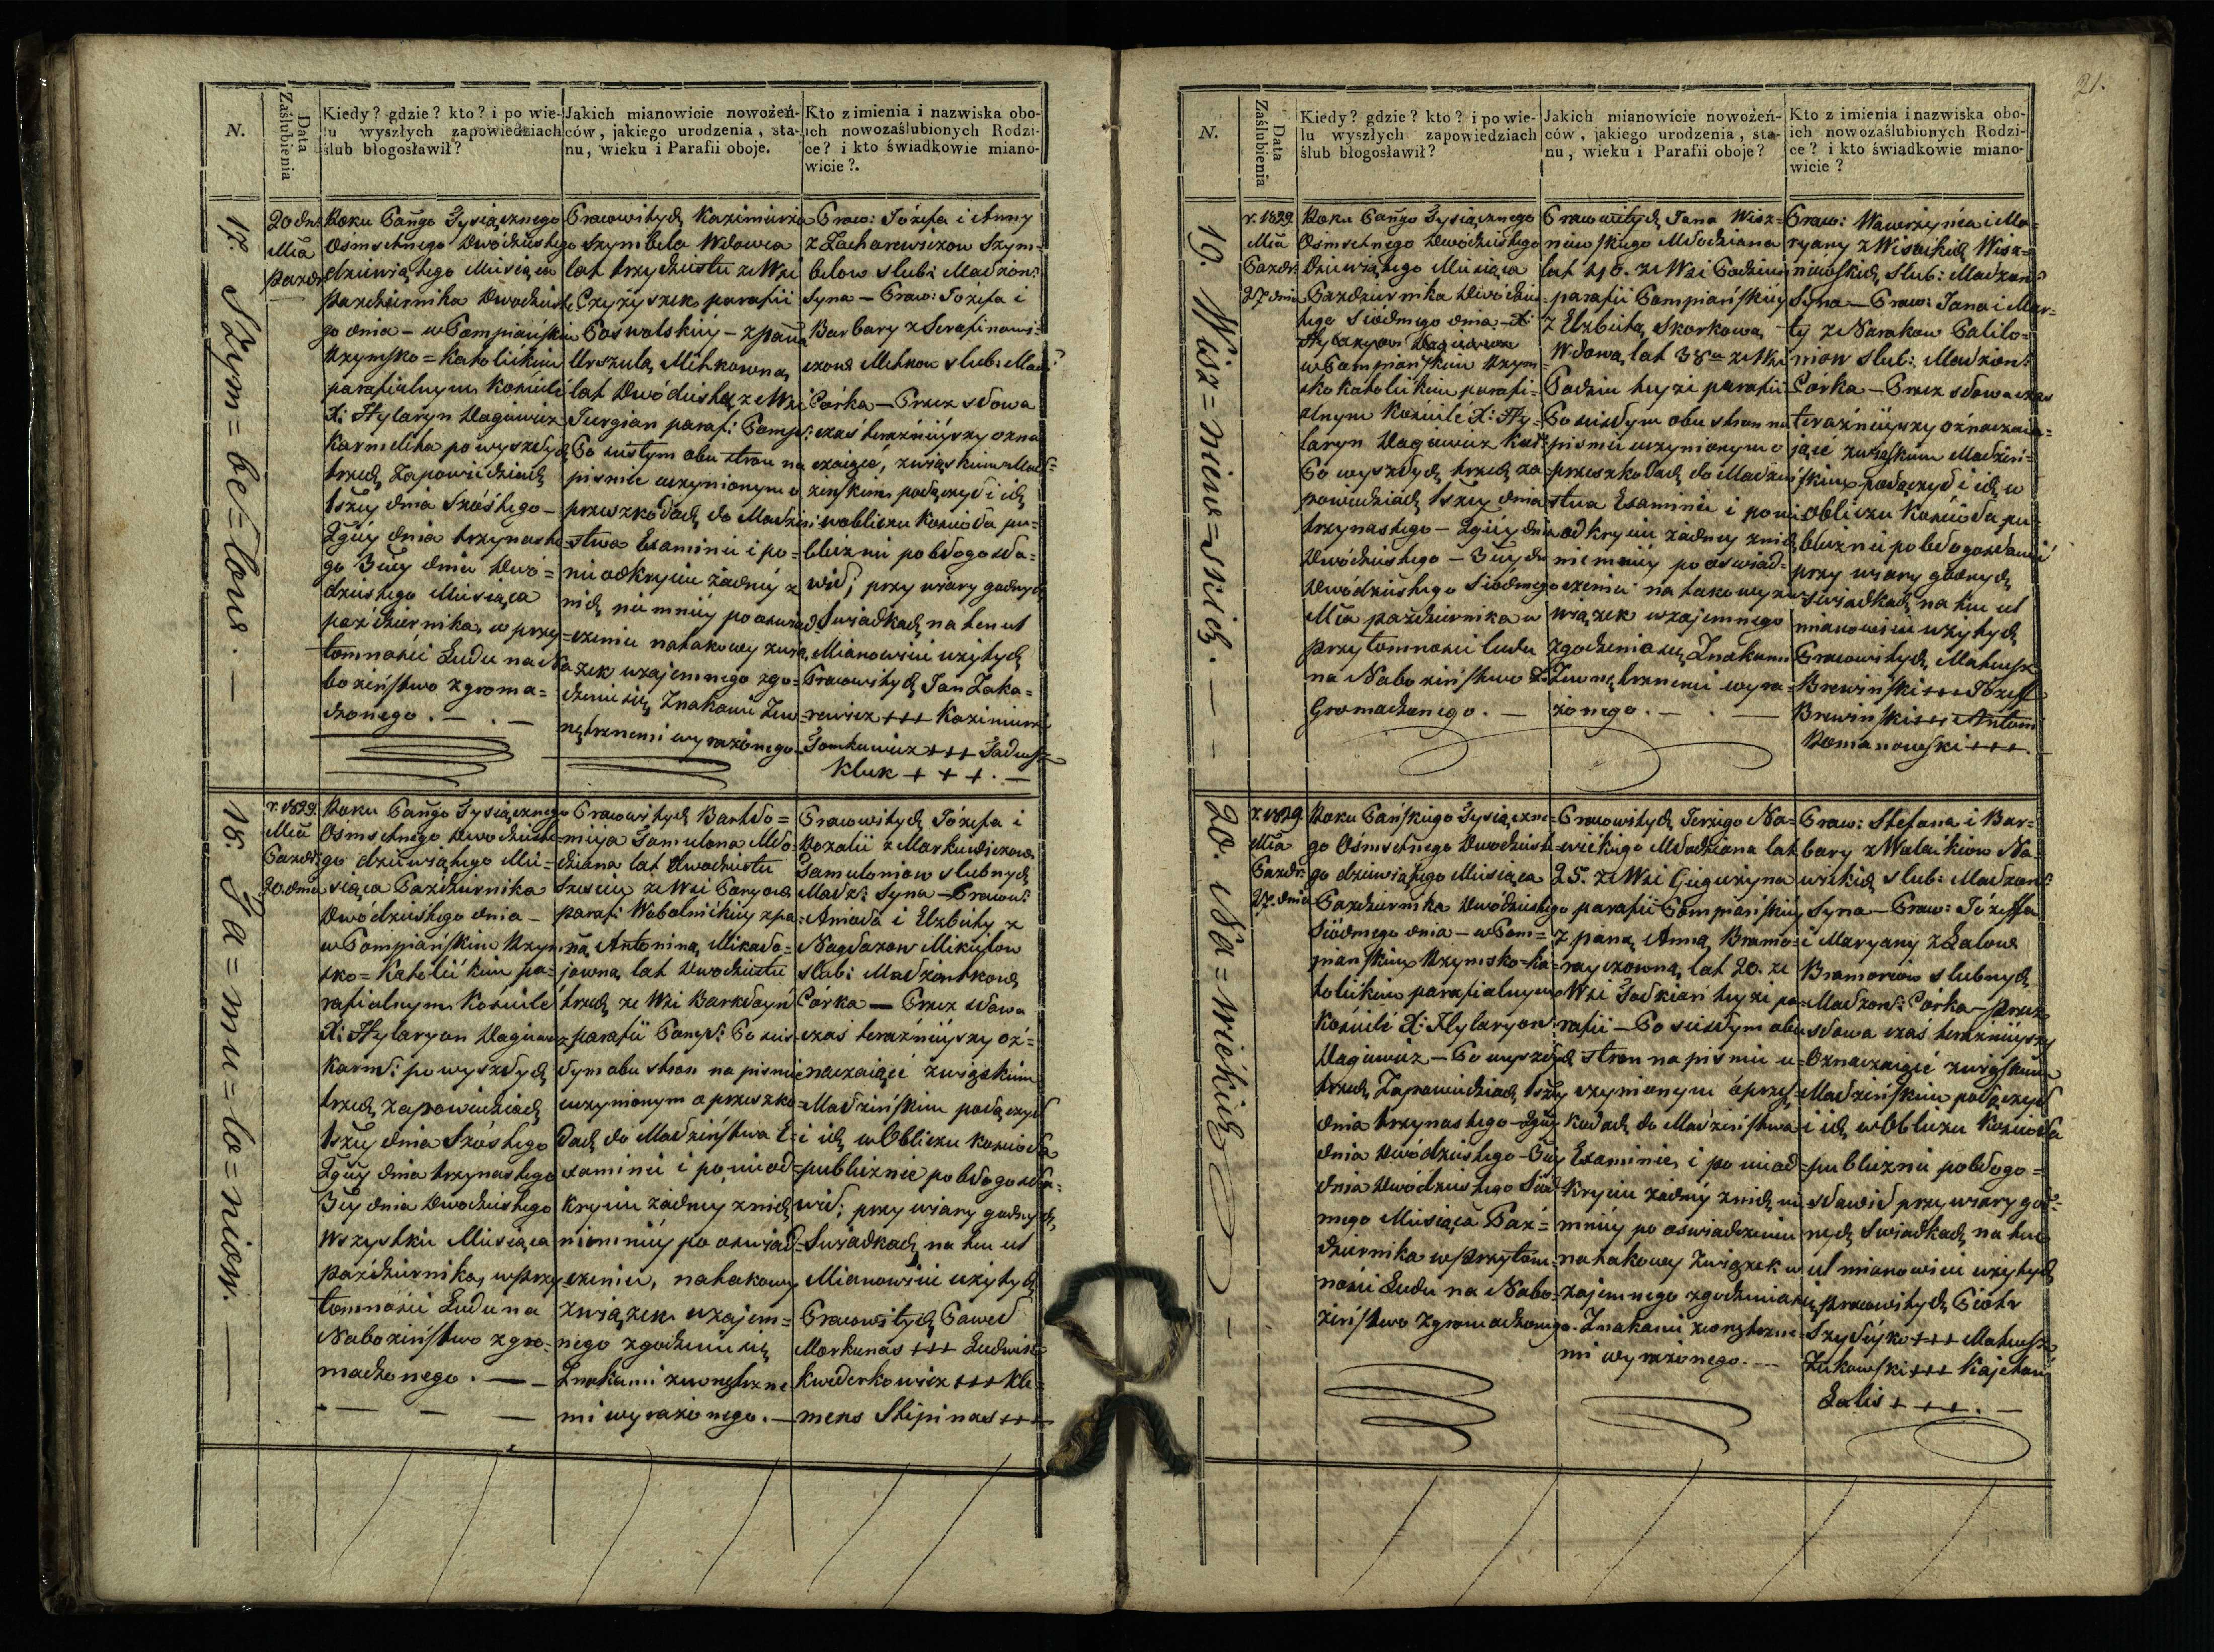 N.
Data
Zaślubienia
Kiedy? gdzie? kto? i po wie-
lu wyszłych zapowiedziach
ślub błogosławił?
Jakich mianowicie nowożeń-
ców, jakiego urodzenia, sta-
nu, wieku i Parafii oboje.
Kto z imienia i nazwiska obo-
ich nowozaślubionych Rodzi-
ce? i kto świadkowie miano-
wicie?.
17. Szym=be=low. —
20 dnia
Mca
Pazdr
Roku Pańgo Tysiącznego
Ośmsetnego Dwódziestego
dziewiątego Miesiąca
Pazdziernika Dwodzieste
go dnia – w Pompiańskim
Rzymsko=Katolickim
parafialnym Kościele
X: Hylaryn Wagiewicz
Karmelita po wyszłych
trzech Zapowiedziach
1szey dnia Szóstego –
2giey dnia trzynaste
go 3ciey dnia Dwó=
dziestego Miesiąca
października, w przy=
tomności Ludu na Na
bożeństwo zgroma=
dzonego. — . —
Prawowitych Kazimierza
Szymbela Wdowca
lat trzydziestu ze Wsi
Czyżyszek parafii
Poswolskiey – z panną
Urszulą Mitkowną
lat Dwódziestu ze Wsi
Jurgian paraf: Pomp:
Po ścisłym obu stron na
piśmie uczynionym o
przeszkodach do Małżeń
=stwa Examinie i po=
nieodkryciu żadney z
nich, niemniey po oświad
=czeniu natakowy zwią
zek wzajemnego zgo=
dzenia się, Znakami Zew=
nętrznemi wyrażonego
Praw: Józefa i Anny
z Zacharewiczow Szym=
below slub: Małżon:
Syna – Praw: Józefa i
Barbary z Serafinowi=
czow Mitkow slub: Małż
Córka – Przez słowa
czas teraźnieyszy ozna
czaiące, związkiem Małż=
żeńskim połączył i ich
w obliczu Kościoła pu=
blicznie pobłogosła=
wił; przy wiary godnych
Swiadkach na ten cel
Mianowicie użytych
Prawowitych, Jan Zaka=
rewicz +++ Kazimierz
Tomkiewicz +++ Tadeusz
Kluk + + +. —
18. Ja=mu=lo=niow. —
r. 1829.
Mca
Pazdr:
20. dnia
Roku Pańgo Tysiącznego
Ośmsetnego Dwodzieste=
go dziewiątego Mie=
siąca Pazdziernika
Dwódziestego dnia –
w Pompiańskim Rzym
sko=Katolickim pa=
rafialnym Kościele
X: Hylaryon Wagiewicz
Karm: po wyszłych
trzech zapowiedziach
1szey dnia Szóstego
2giey dnia trzynastego
3ciey dnia Dwodziestego
Wszystkie Miesiąca
października, w przy
tomności Ludu na
Nabożeństwo zgro=
madzonego. — —
Prawowitych Bartło=
mieja Jamulona Mło=
dziana lat Dwadziestu
Sześciu ze Wsi
paraf: Wobolnickiey z pa=
ną Antoniną Mikało=
jowną lat Dwodziestu
trzech ze Wsi
z parafii Pomp: Po ścis
łym obu stron na piśmie
uczynionym o przeszko=
dach do Małżeństwa E=
xaminie i po nieod=
kryciu żadney z nich
niemniey po oświad=
czeniu, na takowy
związek wzajem=
nego zgodzenia się
Znakami zewnętrzne
mi wyrażonego. —
Prawowitych Józefa i
Rozalii z Markiewiczow
Jamuloniow slubnych
Małż: Syna – Prawow:
Anioła i Elzbiety z
Nagdazow Mikuiłow
slub: Małżonkow
Córka — Przez słowa
czas teraźnieyszy oz=
naczaiące związkiem
Małżeńskim połączył
i ich w Obliczu kościoła
publicznie pobłogosła=
wił; przy wiary godnych,
Swiadkach na ten cel
Mianowicie użytych
Prawowitych Paweł
Morkunas +++ Ludwik
Kwederkowicz +++ Kle=
mens Stepinas +++
21.
N.
Data
Zaślubienia
Kiedy? gdzie? kto? i po wie-
lu wyszłych zapowiedziach
ślub błogosławił?
Jakich mianowicie nowożeń-
ców, jakiego urodzenia, sta-
nu, wieku i Parafii oboje?
Kto z imienia i nazwiska obo-
ich nowozaślubionych Rodzi-
ce? i kto świadkowie miano-
wicie?
19. Wisz=niew=skich. — —
r. 1829
Mca
Pazdr:
27 dnia
Roku Pańgo Tysiącznego
Ośmsetnego Dwódziestego
Dziewiątego Miesiąca
Pazdziernika Dwódzies=
tego Siódmego dnia – X:
Hylaryon Wagiewicz
w Pompiańskim Rzym=
sko Katolickim parafi=
alnym Kościele X: Hy=
laryn Wagiewicz Kar:
Po wyszłych trzech za=
powiedziach 1szey dnia
trzynastego – 2giey dnia
Dwódziestego – 3ciey dn
Dwódziestego Siódmego
Mca października w
przytomności ludu
na Nabożeństwo Z
Gromadzonego. —
Prawowitych Jana Wisz=
niewskiego Młodziana
lat 40. ze Wsi Podziun
parafii Pompiańskiey
z Elzbietą Skorkową
Wdową lat 38 ze Wsi
Podziu teyże parafii
Po ścisłym obu stron na
piśmie uczynionym o
przeszkodach do Małżeń
stwa Examinie i po nie
odkryciu żadney z nich
niemniey po oświad=
czeniu na takowy z=
wiązek wzajemnego
Zgodzenia się, Znakami
Zewnętrznemi wyra=
żonego. — . —
Praw: Wawrzyńca i Ma=
ryany z Wisockich Wisz=
niewskich, Slub: Małżon:
Syna – Praw: Jana i Mar=
ty ze Narakow Patilo=
now slub: Małżon:
Córka – Przez słowa czas
teraźnieyszy oznacza=
jące związkiem Małżeń=
skim połączył i ich w
obliczu Kościoła pu=
blicznie pobłogosławił
przy wiary godnych
swiadkach na ten cel
mianowicie użytych
Prawowitych, Mateusz
Brewiński +++ Józef
Brewinski +++ Antoni
Romanowski +++.
20. Na=wickich —
r. 1829
Mca
Pazdr:
27. dnia
Roku Pańskiego Tysiączne=
go Ośmsetnego Dwodzieste=
go dziewiątego Miesiąca
Pazdziernika Dwódziestego
Siódmego dnia – w Pom=
piańskim Rzymsko=ka=
tolickim parafialnym
Kościele X: Hylaryon
Wagiewicz – Po wyszłych
trzech Zapowiedziach 1szey
dnia trzynastego – 2giey
dnia Dwódziestego – 3ciey
dnia Dwódziestego Siód=
mego Miesiąca Paź=
dziernika w przytom=
ności Ludu na Nabo=
żeństwo Zgromadzonego.
Prawowitych Jerzego Na=
wickiego Młodziana lat
25. ze Wsi Gieguzyna
parafii Pompiańskiey
z panną Anną Bramo=
rayczowną lat 20. ze
Wsi Jodkian teyże pa=
rafii – Po ścisłym obu
stron na piśmie u=
czynionym o przesz=
kodach do Małżeństwa
Examinie, i po nieod=
kryciu żadney z nich, nie
mniey po oświadczeniu
na takowy Związek w
zajemnego zgodzenia się,
Znakami zewnętrzne=
mi wyrażonego. —
Praw: Stefana i Bar=
bary z Walaikiow Na=
wickich slub: Małżon:
Syna – Praw: Józeffa
i Maryany z Zalow
Bramorow slubnych
Małżon: Córka – przez
słowa czas teraźnieyszy
Oznaczaiące związkiem
Małżeńskim połączył
i ich w Obliczu Kościoła
publicznie pobłogo=
sławił przy wiary god=
nych Swiadkach na ten
cel mianowicie użytych
prawowitych, Piotr
Szydeyko +++ Mateusz
Zukowski +++ Kajetan
Zalis +++. —